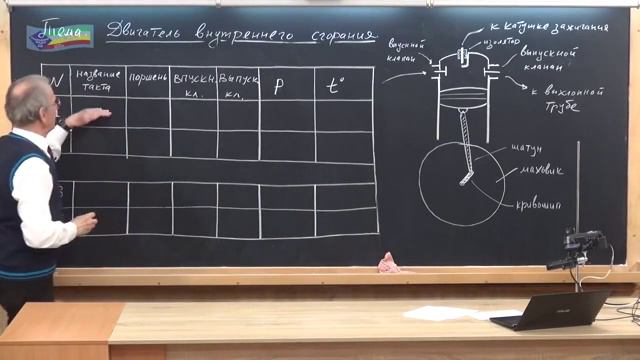 Тема Двигатель внутреннего сгорания
N
название
такта
поршень
впускн.
кл.
Выпуск
кл.
P
t°
3
к катушке зажигания
изолятор
впускной
клапан
выпускной
клапан
к выхлопной
трубе
шатун
маховик
кривошип